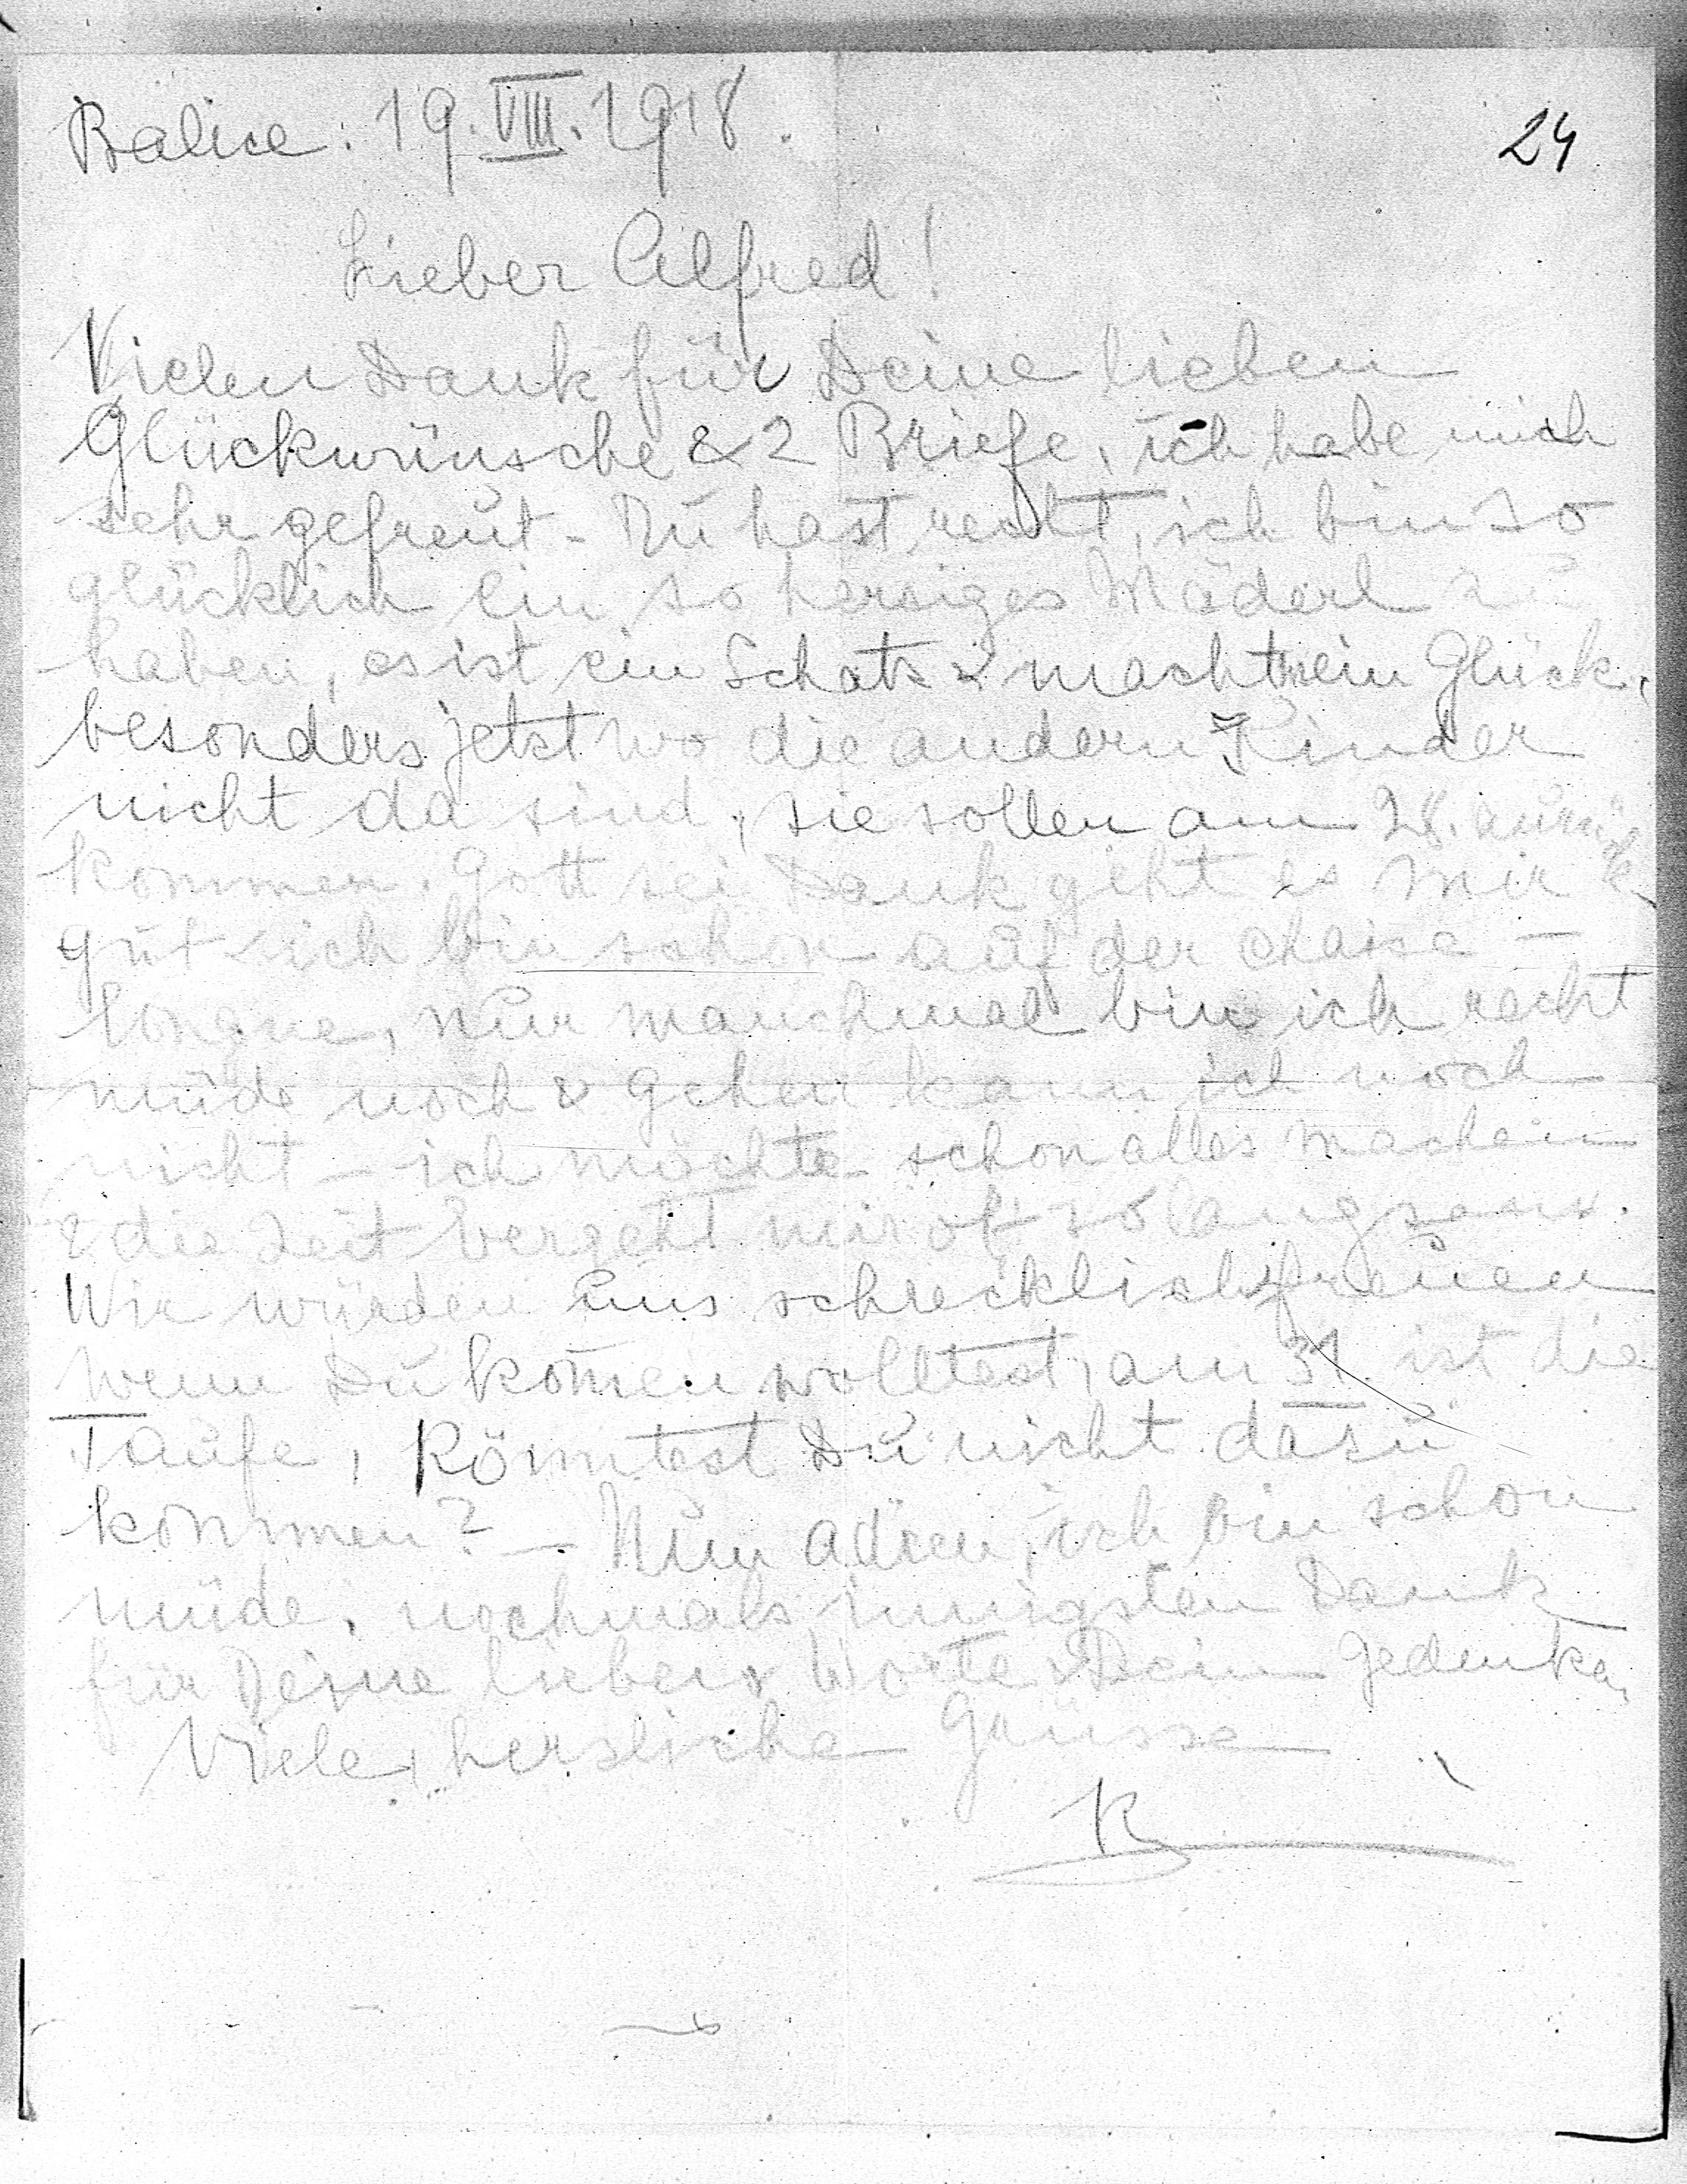 Balice: 19.VIII.1918.
24
Lieber Alfred!
Vielen Dank für Deine lieben
Glückwünsche & 2 Briefe, ich habe mich
sehr gefreut - Du hast recht, ich bin so
glücklich ein so herziges Mäderl zu
haben, es ist ein Schatz & macht mein Glück,
besonders jetzt wo die andern Kinder
nicht da sind, sie sollen am 28. zurück
kommen. Gott sei Dank geht es mir
gut ich bin schon auf der chaise-
longue, nur manchmal bin ich recht
müde noch & gehen kann ich noch
nicht - ich möchte schon alles machen
& die Zeit vergeht mir oft so langsam.
Wir würden uns schrecklich freuen
wenn Du kom̄en wolltest, am 31. ist die
Taufe, könntest Du nicht dazu
kommen? - Nun adieu, ich bin schon
müde, nochmals innigsten Dank
für Deine lieben Worte & Dein Gedenken
Viele, herzliche Grüsse
R